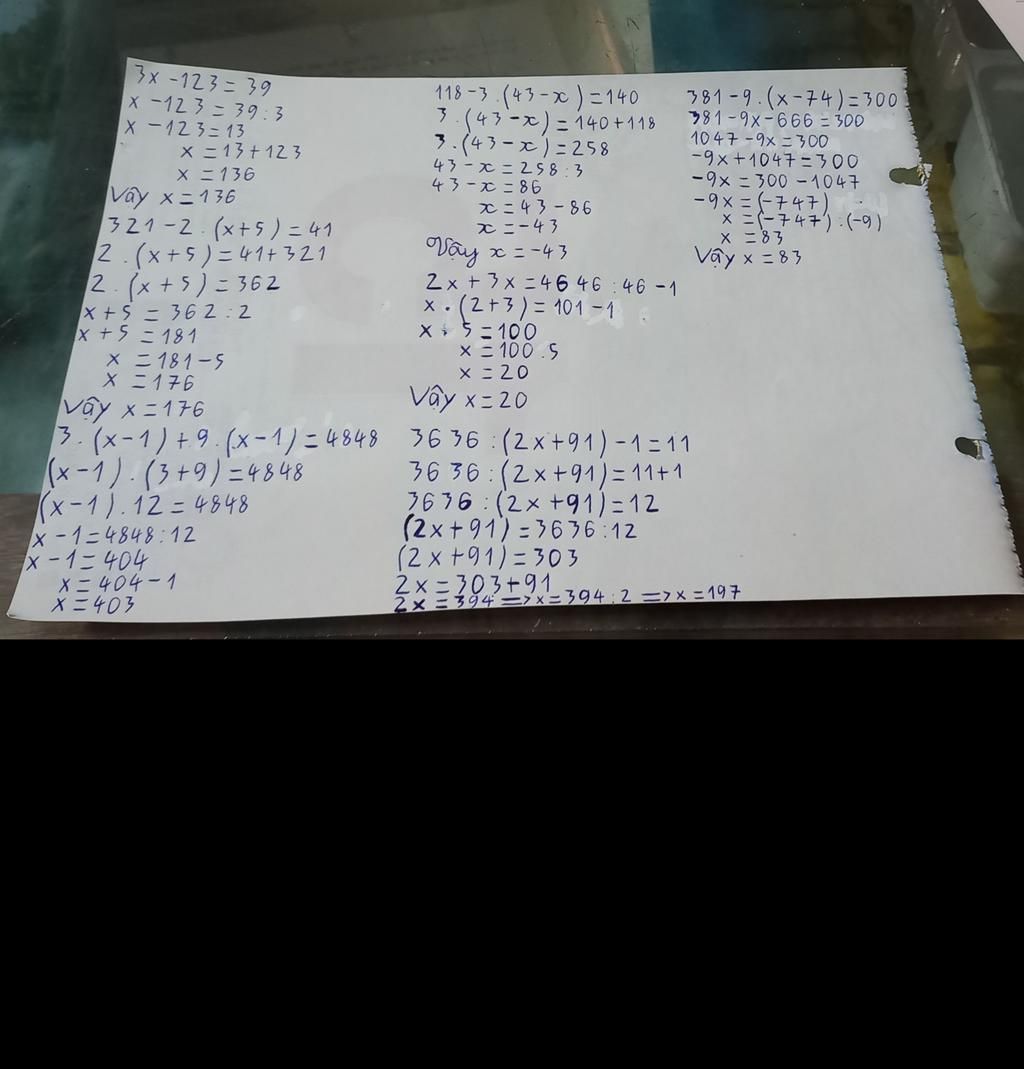 3x - 123 = 39
x - 123 = 39 : 3
x - 123 = 13
x = 13 + 123
x = 136
Vậy x = 136
321 - 2 . (x + 5) = 41
2 . (x + 5) = 41 + 321
2 . (x + 5) = 362
x + 5 = 362 : 2
x + 5 = 181
x = 181 - 5
x = 176
Vậy x = 176
3 . (x - 1) + 9 . (x - 1) = 4848
(x - 1) . (3 + 9) = 4848
(x - 1) . 12 = 4848
x - 1 = 4848 : 12
x - 1 = 404
x = 404 - 1
x = 403
118 - 3 . (43 - x) = 140
3 . (43 - x) = 140 + 118
3 . (43 - x) = 258
43 - x = 258 : 3
43 - x = 86
x = 43 - 86
x = -43
Vậy x = -43
2x + 3x = 4646 : 46 - 1
x . (2 + 3) = 101 - 1
x . 5 = 100
x = 100 . 5
x = 20
Vậy x = 20
3636 : (2x + 91) - 1 = 11
3636 : (2x + 91) = 11 + 1
3636 : (2x + 91) = 12
(2x + 91) = 3636 : 12
(2x + 91) = 303
2x = 303 + 91
2x = 394 => x = 394 : 2 => x = 197
381 - 9 . (x - 74) = 300
381 - 9x - 666 = 300
1047 - 9x = 300
-9x + 1047 = 300
-9x = 300 - 1047
-9x = (-747)
x = (-747) : (-9)
x = 83
Vậy x = 83